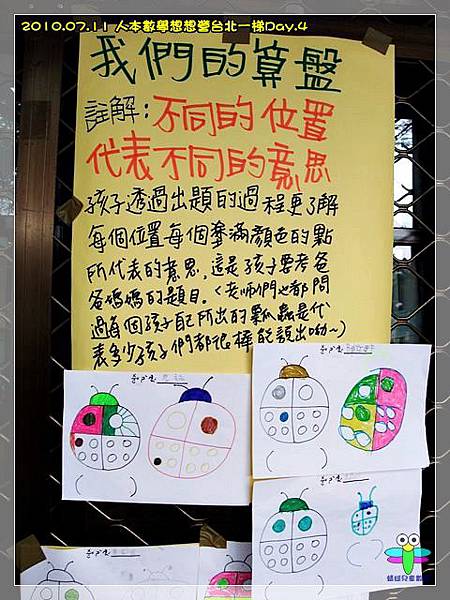 2010.07.11 人本數學想想營台北一梯Day.4
我們的算盤
註解:不同的位置
代表不同的意思
孩子透過出題的過程更了解
每個位置每個塗滿顏色的點
所代表的意思,這是孩子要考爸
爸媽媽的題目。(老師們也都問
過每個孩子自己所出的瓢蟲是代
表多少孩子們都很棒能說出呦~)